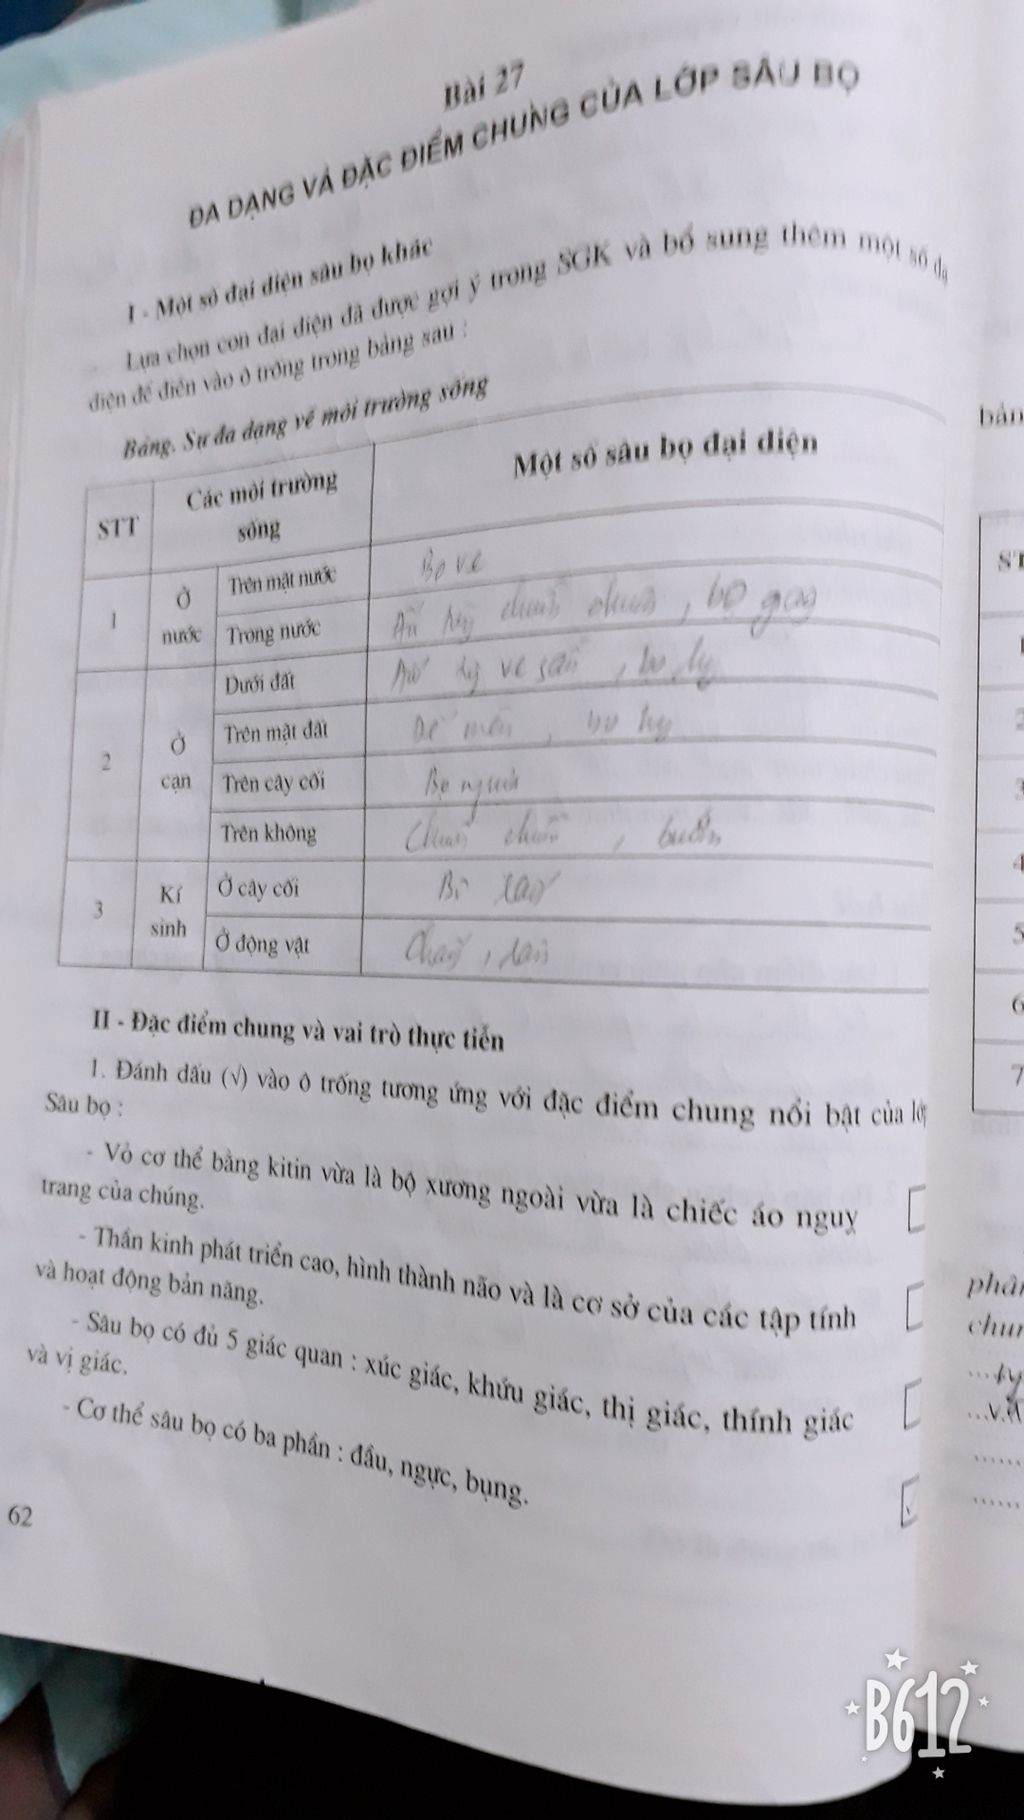 Bài 27
ĐA DẠNG VÀ ĐẶC ĐIỂM CHUNG CỦA LỚP SÂU BỌ
I - Một số đại diện sâu bọ khác
Lựa chọn con đại diện đã được gợi ý trong SGK và bổ sung thêm một số đạ
diện để điền vào ô trống trong bảng sau :
Bảng. Sự đa dạng về môi trường sống
STT
Các môi trường
sống
Một số sâu bọ đại diện
1
Ở
nước
Trên mặt nước
Bọ vẽ
Trong nước
Ấu chuồn chuồn, bọ gậy
2
Ở
cạn
Dưới đất
ve sầu,
Trên mặt đất
Dế mèn, bọ
Trên cây cối
Bọ ngựa
Trên không
Chuồn chuồn, bướm
3
Kí
sinh
Ở cây cối
Bọ
Ở động vật
Chấy, rận
II - Đặc điểm chung và vai trò thực tiễn
1. Đánh dấu (√) vào ô trống tương ứng với đặc điểm chung nổi bật của lớp
Sâu bọ :
- Vỏ cơ thể bằng kitin vừa là bộ xương ngoài vừa là chiếc áo nguỵ
trang của chúng.
- Thần kinh phát triển cao, hình thành não và là cơ sở của các tập tính
và hoạt động bản năng.
- Sâu bọ có đủ 5 giác quan : xúc giác, khứu giác, thị giác, thính giác
và vị giác.
- Cơ thể sâu bọ có ba phần : đầu, ngực, bụng.
62
bản
ST
1
2
3
4
5
6
7
phân
chun
B612